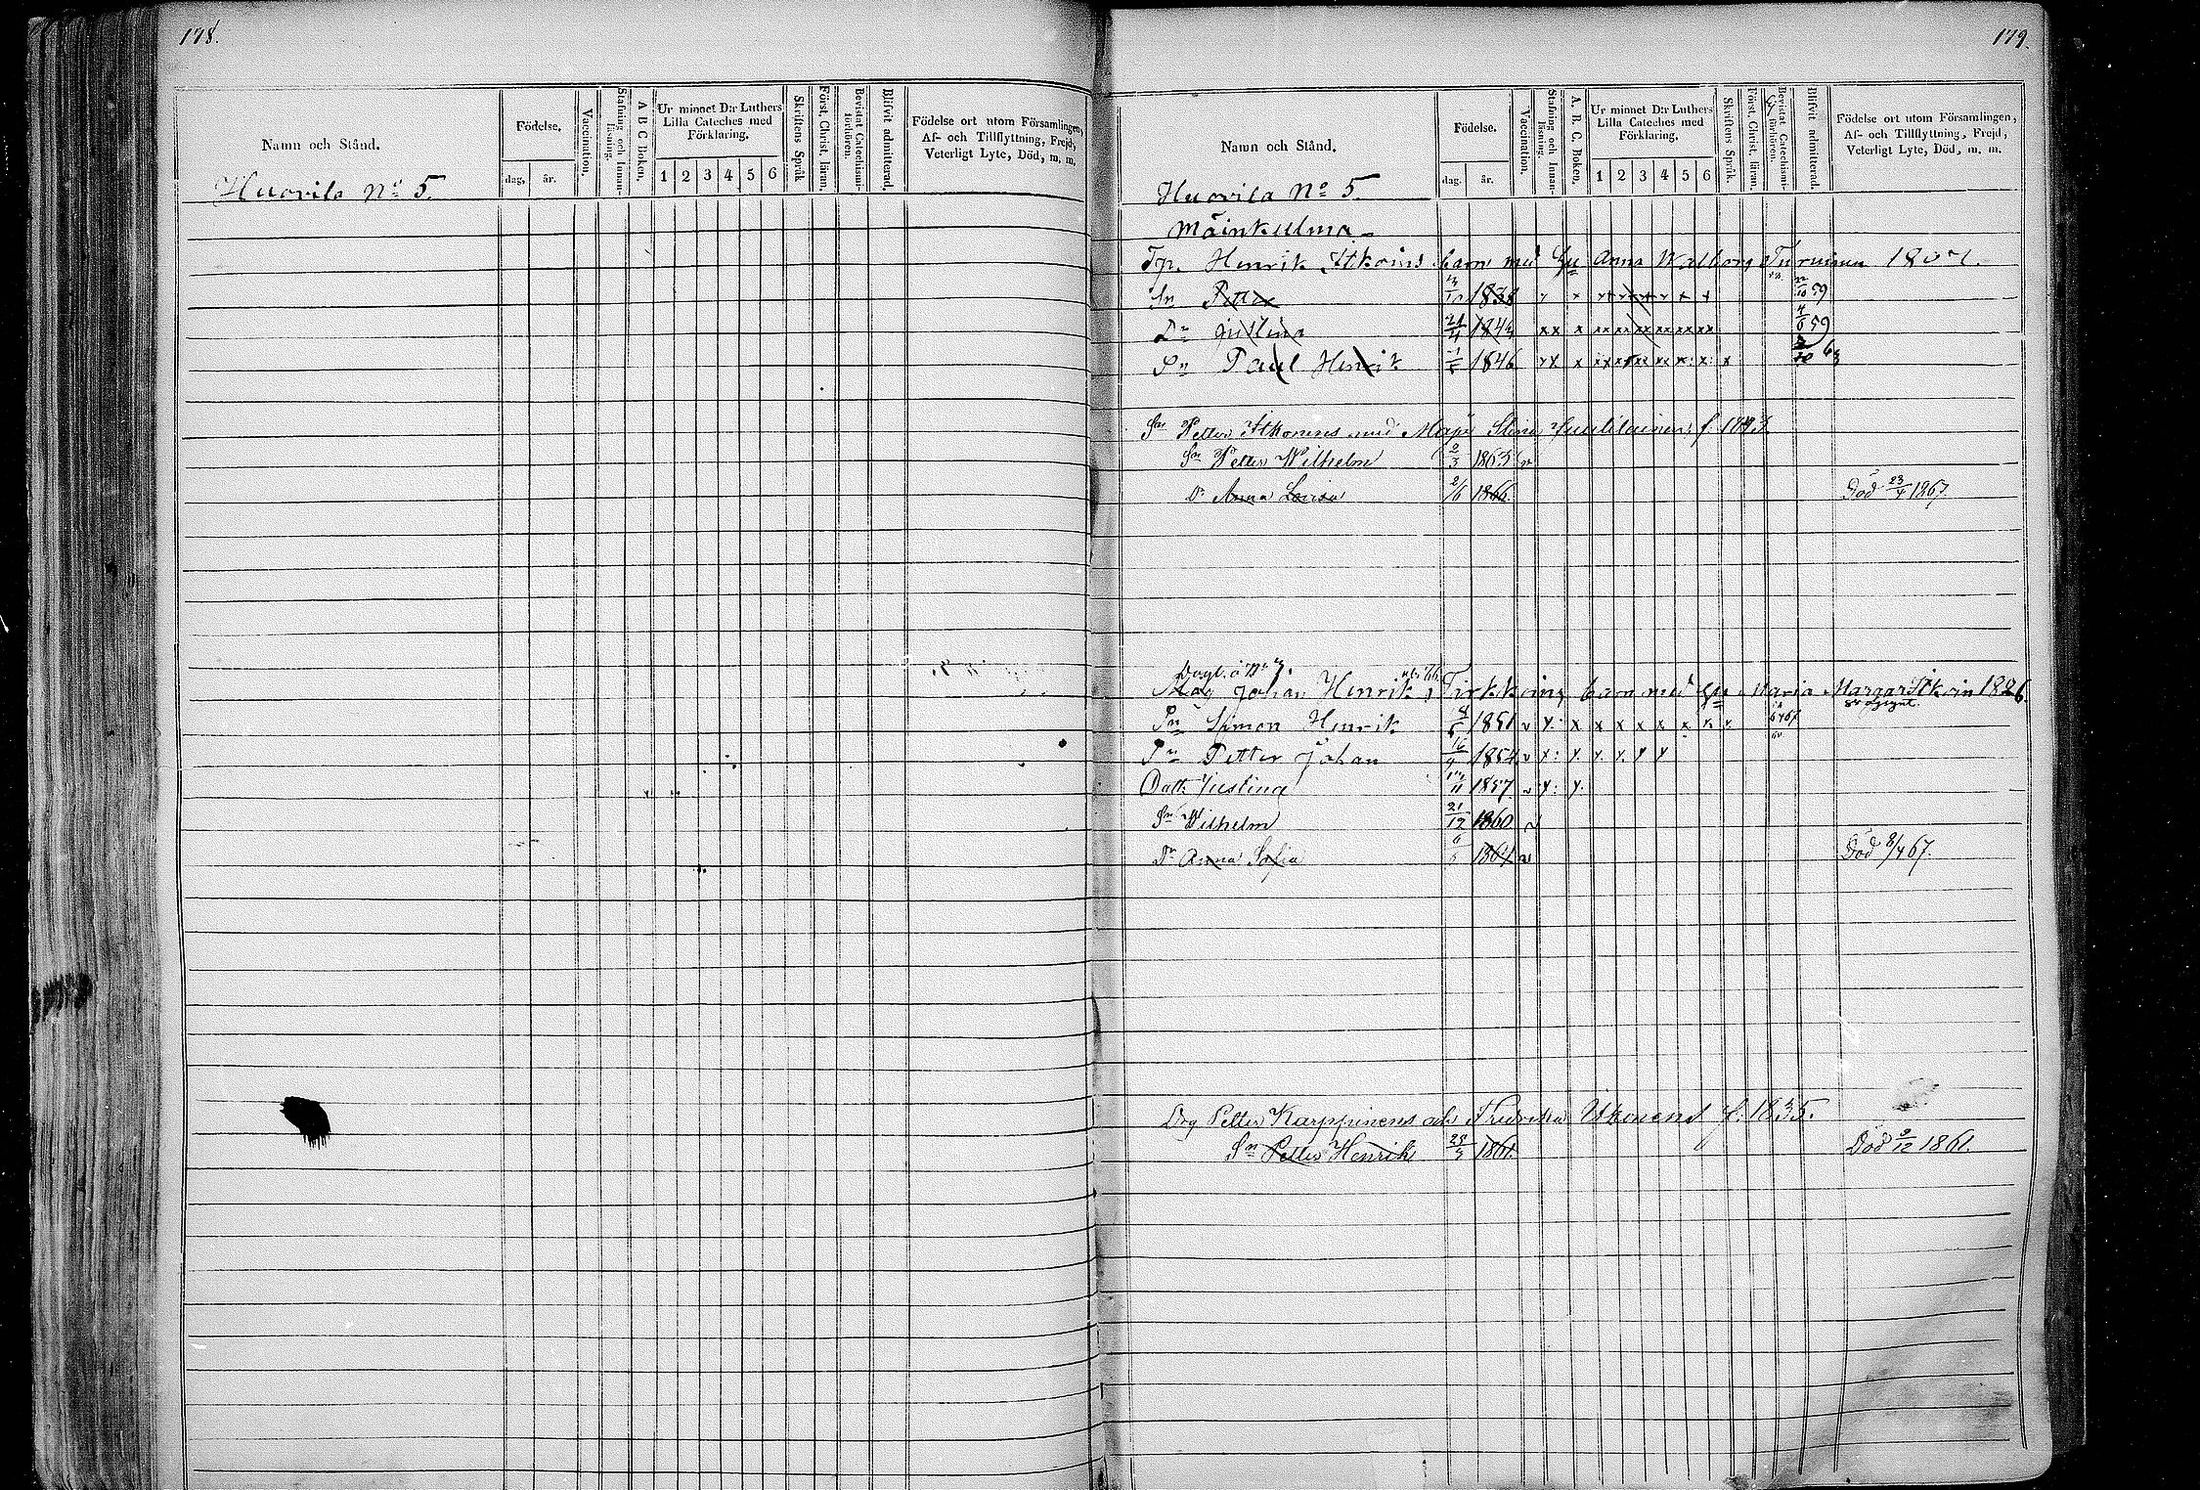 178.
Namn och Stånd.
Födelse.
dag, år.
Vaccination.
Stafning och Innanläsning.
A B C Boken.
Ur minnet D:r Luthers Lilla Cateches med Förklaring.
1 2 3 4 5 6
Skriftens Språk
Först. Christ. läran.
Bevistat Catechismiförhören.
Blifvit admitterad.
Födelse ort utom Församlingen, Af- och Tillflyttning, Frejd, Veterligt Lyte, Död, m. m.
Huovila No 5.
179.
Namn och Stånd.
Födelse.
dag. år.
Vaccination.
Stafning och Innanläsning
A. B. C. Boken.
Ur minnet D:r Luthers Lilla Cateches med Förklaring.
1 2 3 4 5 6
Skriftens Språk.
Först. Christ. läran.
Bevistat Catechismiförhören.
Blifvit admitterad.
Födelse ort utom Församlingen, Af- och Tillflyttning, Frejd, Veterligt Lyte, Död, m. m.
Huovila No 5.
Mäinkulma
Tp. Henrik Itkoins barn med Hu Anna Walborg Turunen
Sn Petter 1838 59
Dr Justina 59
Sn Paul Henrik 1846 x x
Sn Petter Itkoinens med Maja Stina
Sn Petter Wilhelm 2/3 1863 v
Dr Anna Lovisa 2/6 1866. Död 23/4 1867.
Johan Henrik Tirkkoins barn med Hu Maria Margar Itkoin 1826
Sn Simon Henrik 1851 v x x x x x x x
Sn Petter Johan 1854 v
Dott. Justina 1857 v
Sn Wilhelm 21/12 1860 v
Dr Anna Sofia 1864 v Död 8/4 67.
Drg Petter Karppinens och Fredrika Itkonens f. 1835.
Sn Petter Henrik 1861 Död 9/12 1861.